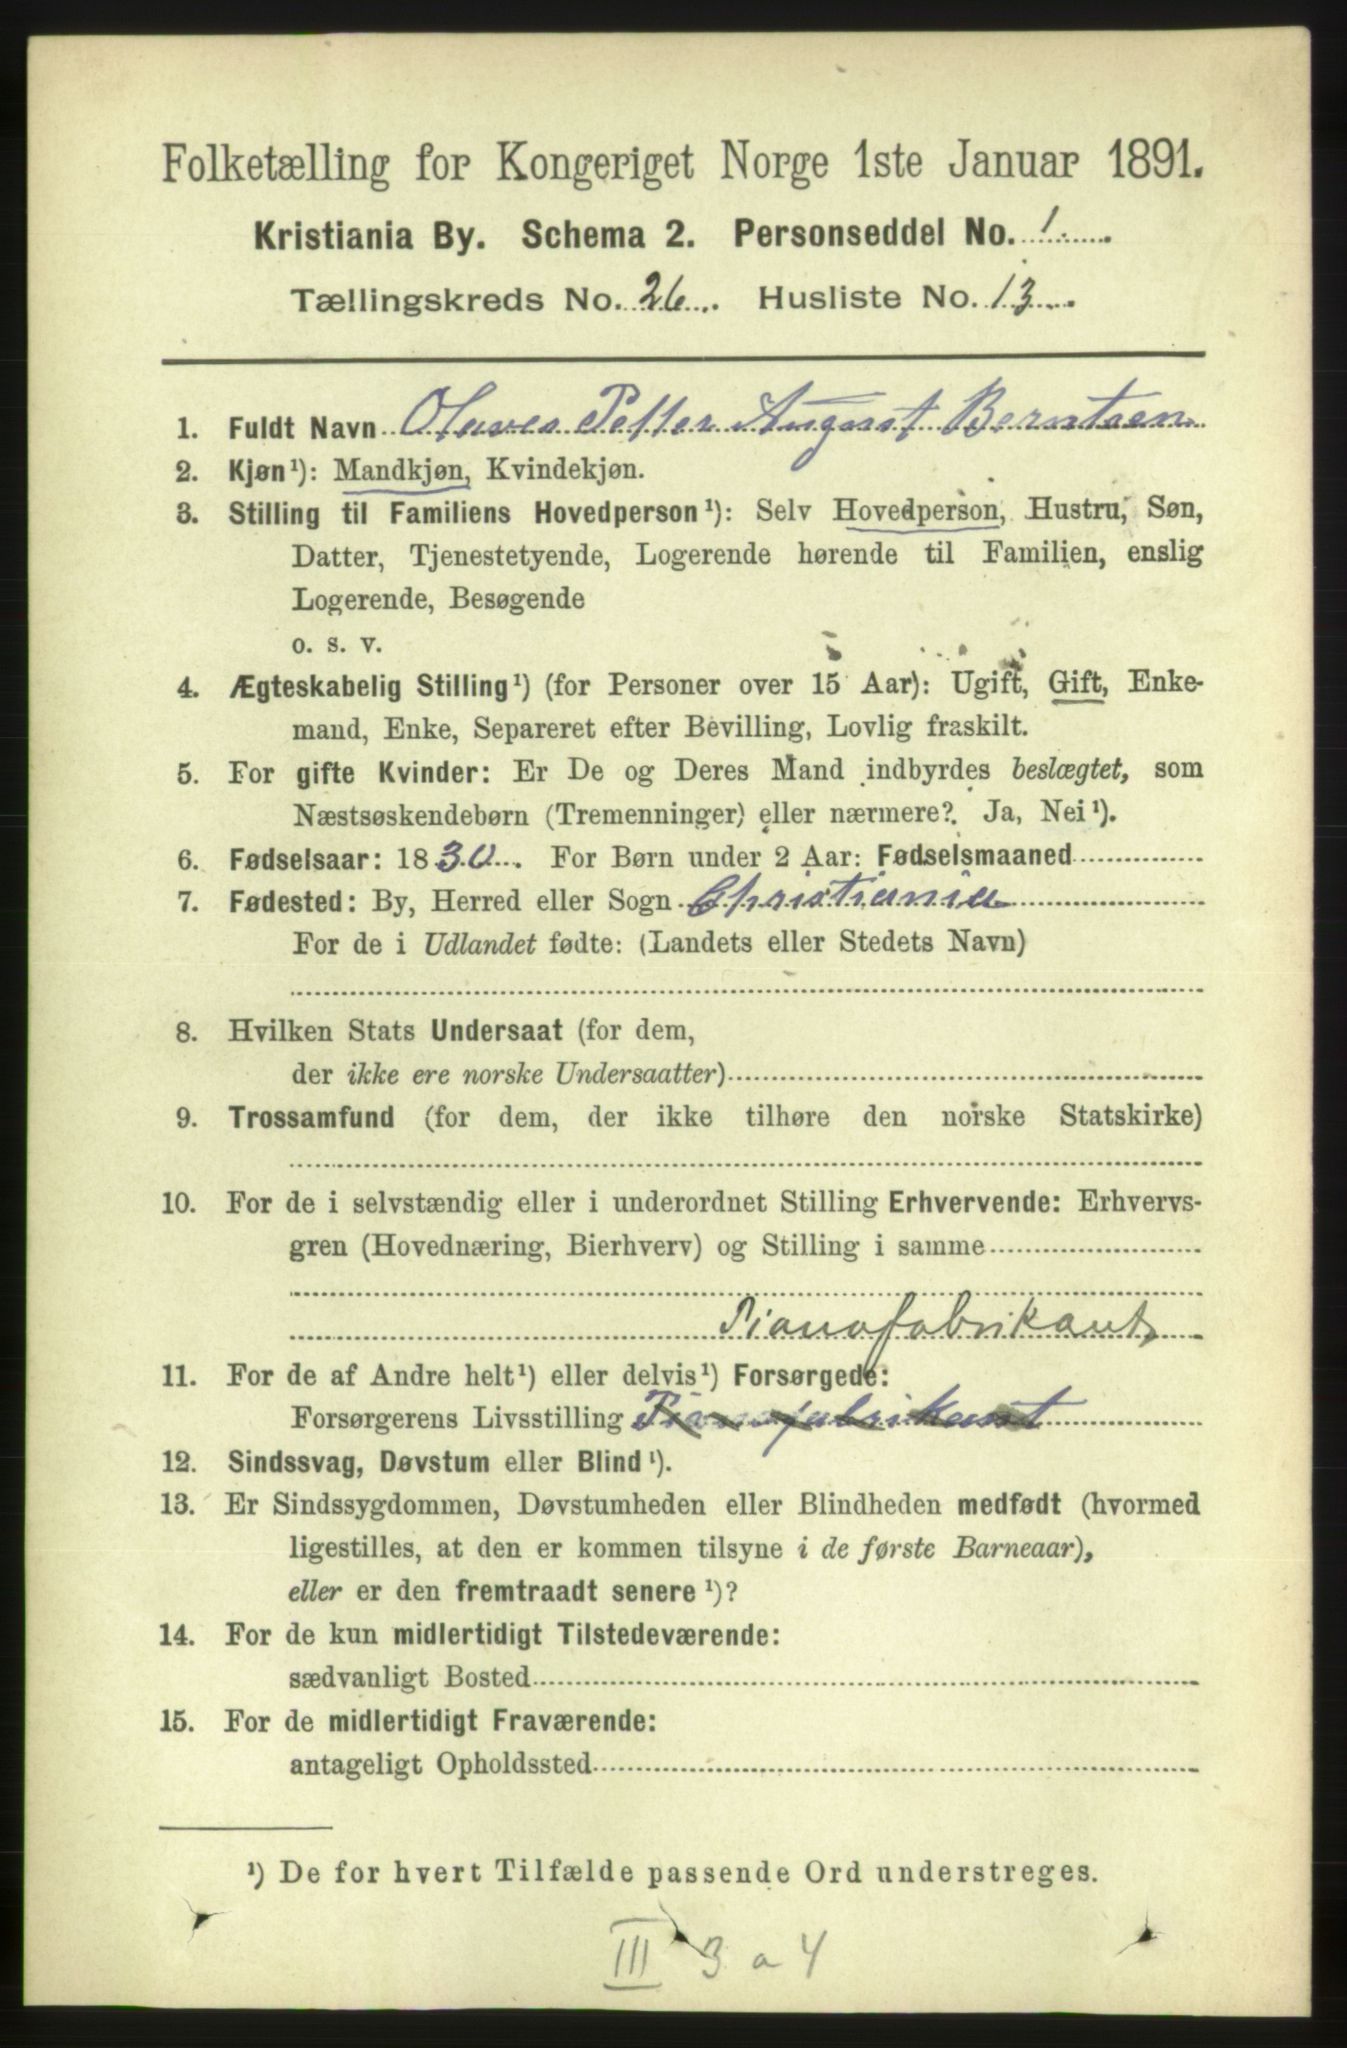 Folketælling for Kongeriget Norge 1ste Januar 1891.
Kristiania By. Schema 2. Personseddel No. 1
Tællingskreds No. 26. Husliste No. 13
1. Fuldt Navn Olaves Petter August Berntsen
2. Kjøn¹): Mandkjøn, Kvindekjøn.
3. Stilling til Familiens Hovedperson¹): Selv Hovedperson, Hustru, Søn,
Datter, Tjenestetyende, Logerende hørende til Familien, enslig
Logerende, Besøgende
o. s. v.
4. Ægteskabelig Stilling¹) (for Personer over 15 Aar): Ugift, Gift, Enke-
mand, Enke, Separeret efter Bevilling, Lovlig fraskilt.
5. For gifte Kvinder: Er De og Deres Mand indbyrdes beslægtet, som
Næstsøskendebørn (Tremenninger) eller nærmere? Ja, Nei¹).
6. Fødselsaar: 1830. For Børn under 2 Aar: Fødselsmaaned
7. Fødested: By, Herred eller Sogn Christiania
For de i Udlandet fødte: (Landets eller Stedets Navn)
8. Hvilken Stats Undersaat (for dem,
der ikke ere norske Undersaatter)
9. Trossamfund (for dem, der ikke tilhøre den norske Statskirke)
10. For de i selvstændig eller i underordnet Stilling Erhvervende: Erhvervs-
gren (Hovednæring, Bierhverv) og Stilling i samme
Pianofabrikant
11. For de af Andre helt¹) eller delvis¹) Forsørgede:
Forsørgerens Livsstilling Pianofabrikant
12. Sindssvag, Døvstum eller Blind¹).
13. Er Sindssygdommen, Døvstumheden eller Blindheden medfødt (hvormed
ligestilles, at den er kommen tilsyne i de første Barneaar),
eller er den fremtraadt senere¹)?
14. For de kun midlertidigt Tilstedeværende:
sædvanligt Bosted
15. For de midlertidigt Fraværende:
antageligt Opholdssted
¹) De for hvert Tilfælde passende Ord understreges.
III 3 a 4